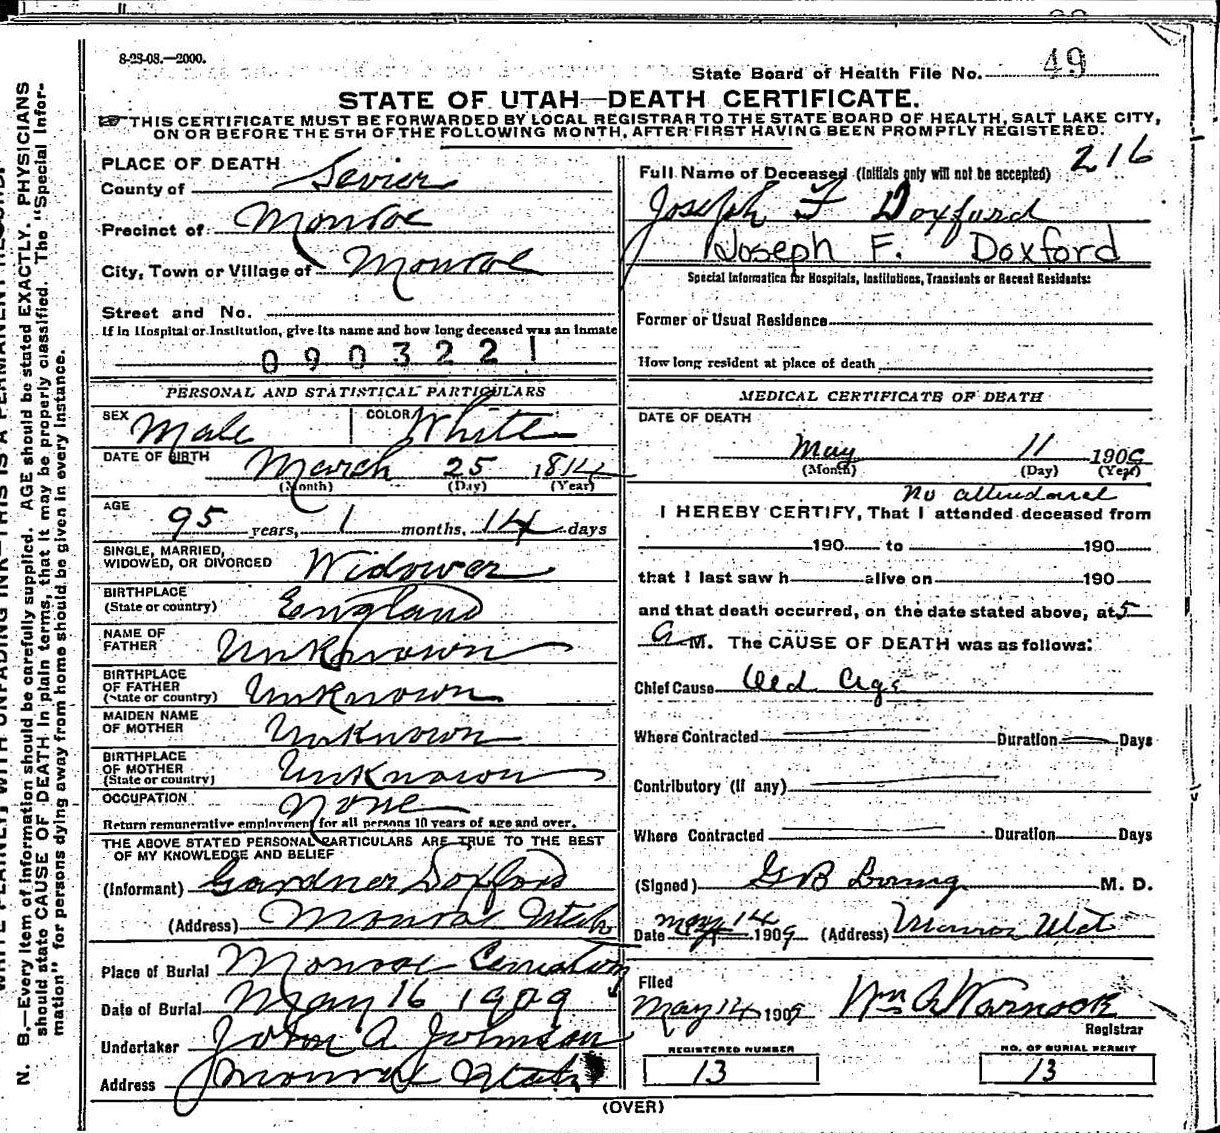 8-23-08.—2000.
State Board of Health File No. 49
STATE OF UTAH—DEATH CERTIFICATE.
THIS CERTIFICATE MUST BE FORWARDED BY LOCAL REGISTRAR TO THE STATE BOARD OF HEALTH, SALT LAKE CITY,
ON OR BEFORE THE 5TH OF THE FOLLOWING MONTH, AFTER FIRST HAVING BEEN PROMPTLY REGISTERED.
PLACE OF DEATH
County of Sevier
Precinct of Monroe
City, Town or Village of Monroe
Street and No.
If in Hospital or Institution, give its name and how long deceased was an inmate
090322 1
PERSONAL AND STATISTICAL PARTICULARS
SEX Male COLOR White
DATE OF BIRTH March 25 1814
(Month) (Day) (Year)
AGE 95 years, 1 months, 14 days
SINGLE, MARRIED,
WIDOWED, OR DIVORCED Widower
BIRTHPLACE
(State or country) England
NAME OF
FATHER Unknown
BIRTHPLACE
OF FATHER
(State or country) Unknown
MAIDEN NAME
OF MOTHER Unknown
BIRTHPLACE
OF MOTHER
(State or country) Unknown
OCCUPATION None
Return remunerative employment for all persons 10 years of age and over.
THE ABOVE STATED PERSONAL PARTICULARS ARE TRUE TO THE BEST
OF MY KNOWLEDGE AND BELIEF
(Informant) Gardner Doxford
(Address) Monroe Utah
Place of Burial Monroe
Date of Burial May 16 1909
Undertaker John A. Johnson
Address Monroe Utah
216
Full Name of Deceased (Initials only will not be accepted)
Joseph F Doxford
Joseph F. Doxford
Special Information for Hospitals, Institutions, Transients or Recent Residents:
Former or Usual Residence
How long resident at place of death
MEDICAL CERTIFICATE OF DEATH
DATE OF DEATH
May 11 1909
(Month) (Day) (Year)
No attendance
I HEREBY CERTIFY, That I attended deceased from
190 to 190
that I last saw h alive on 190
and that death occurred, on the date stated above, at 5
A M. The CAUSE OF DEATH was as follows:
Chief Cause Old Age
Where Contracted Duration Days
Contributory (if any)
Where Contracted Duration Days
(Signed) G B M. D.
Date May 14 1909 (Address) Monroe Utah
Filed
May 14 1909 Wm A Warnock
Registrar
REGISTERED NUMBER
13
NO. OF BURIAL PERMIT
13
(OVER)
N. B.—Every item of information should be carefully supplied. AGE should be stated EXACTLY. PHYSICIANS
should state CAUSE OF DEATH in plain terms, that it may be properly classified. The "Special Infor-
mation" for persons dying away from home should be given in every instance.